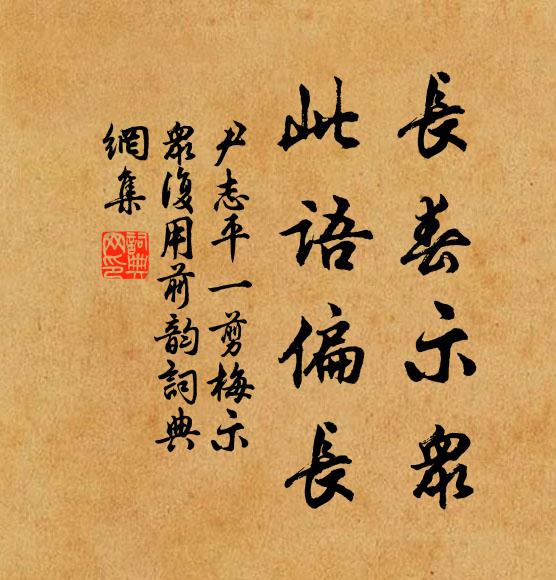 長春示衆
此語偏長
尹志平一剪梅示
衆復用前韵詞典
網集
詞典
网印